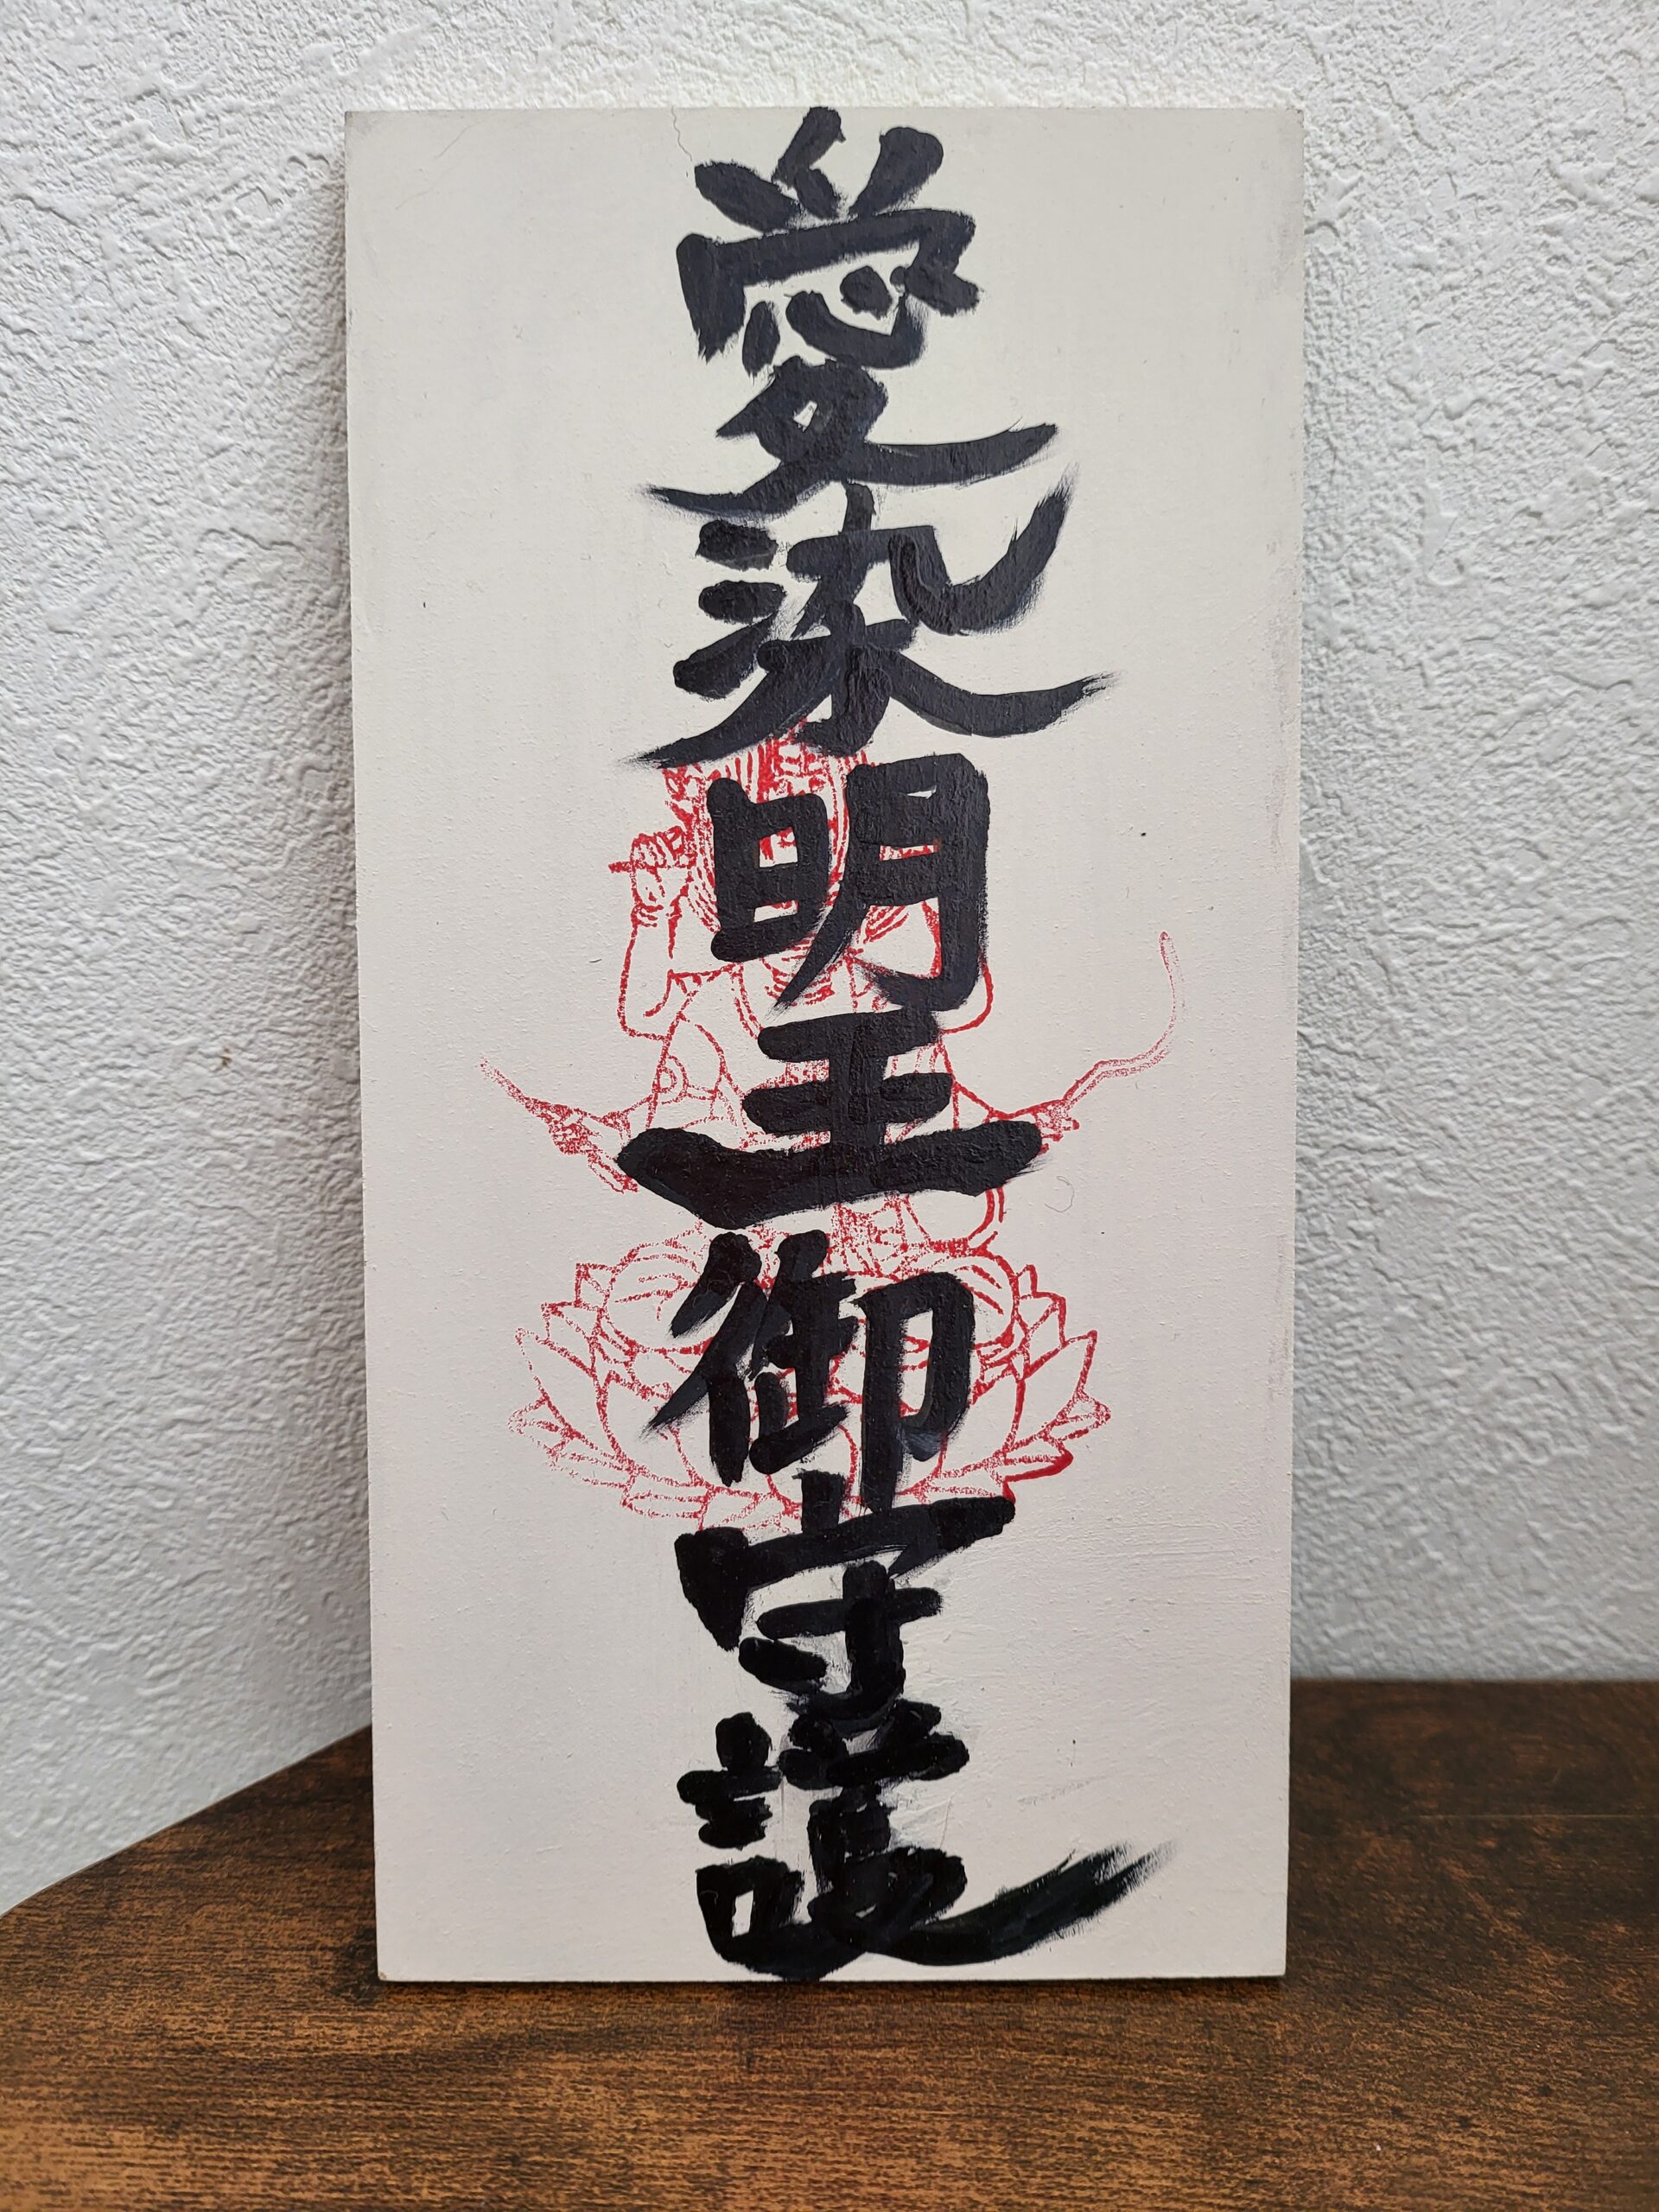 愛染明王御守護